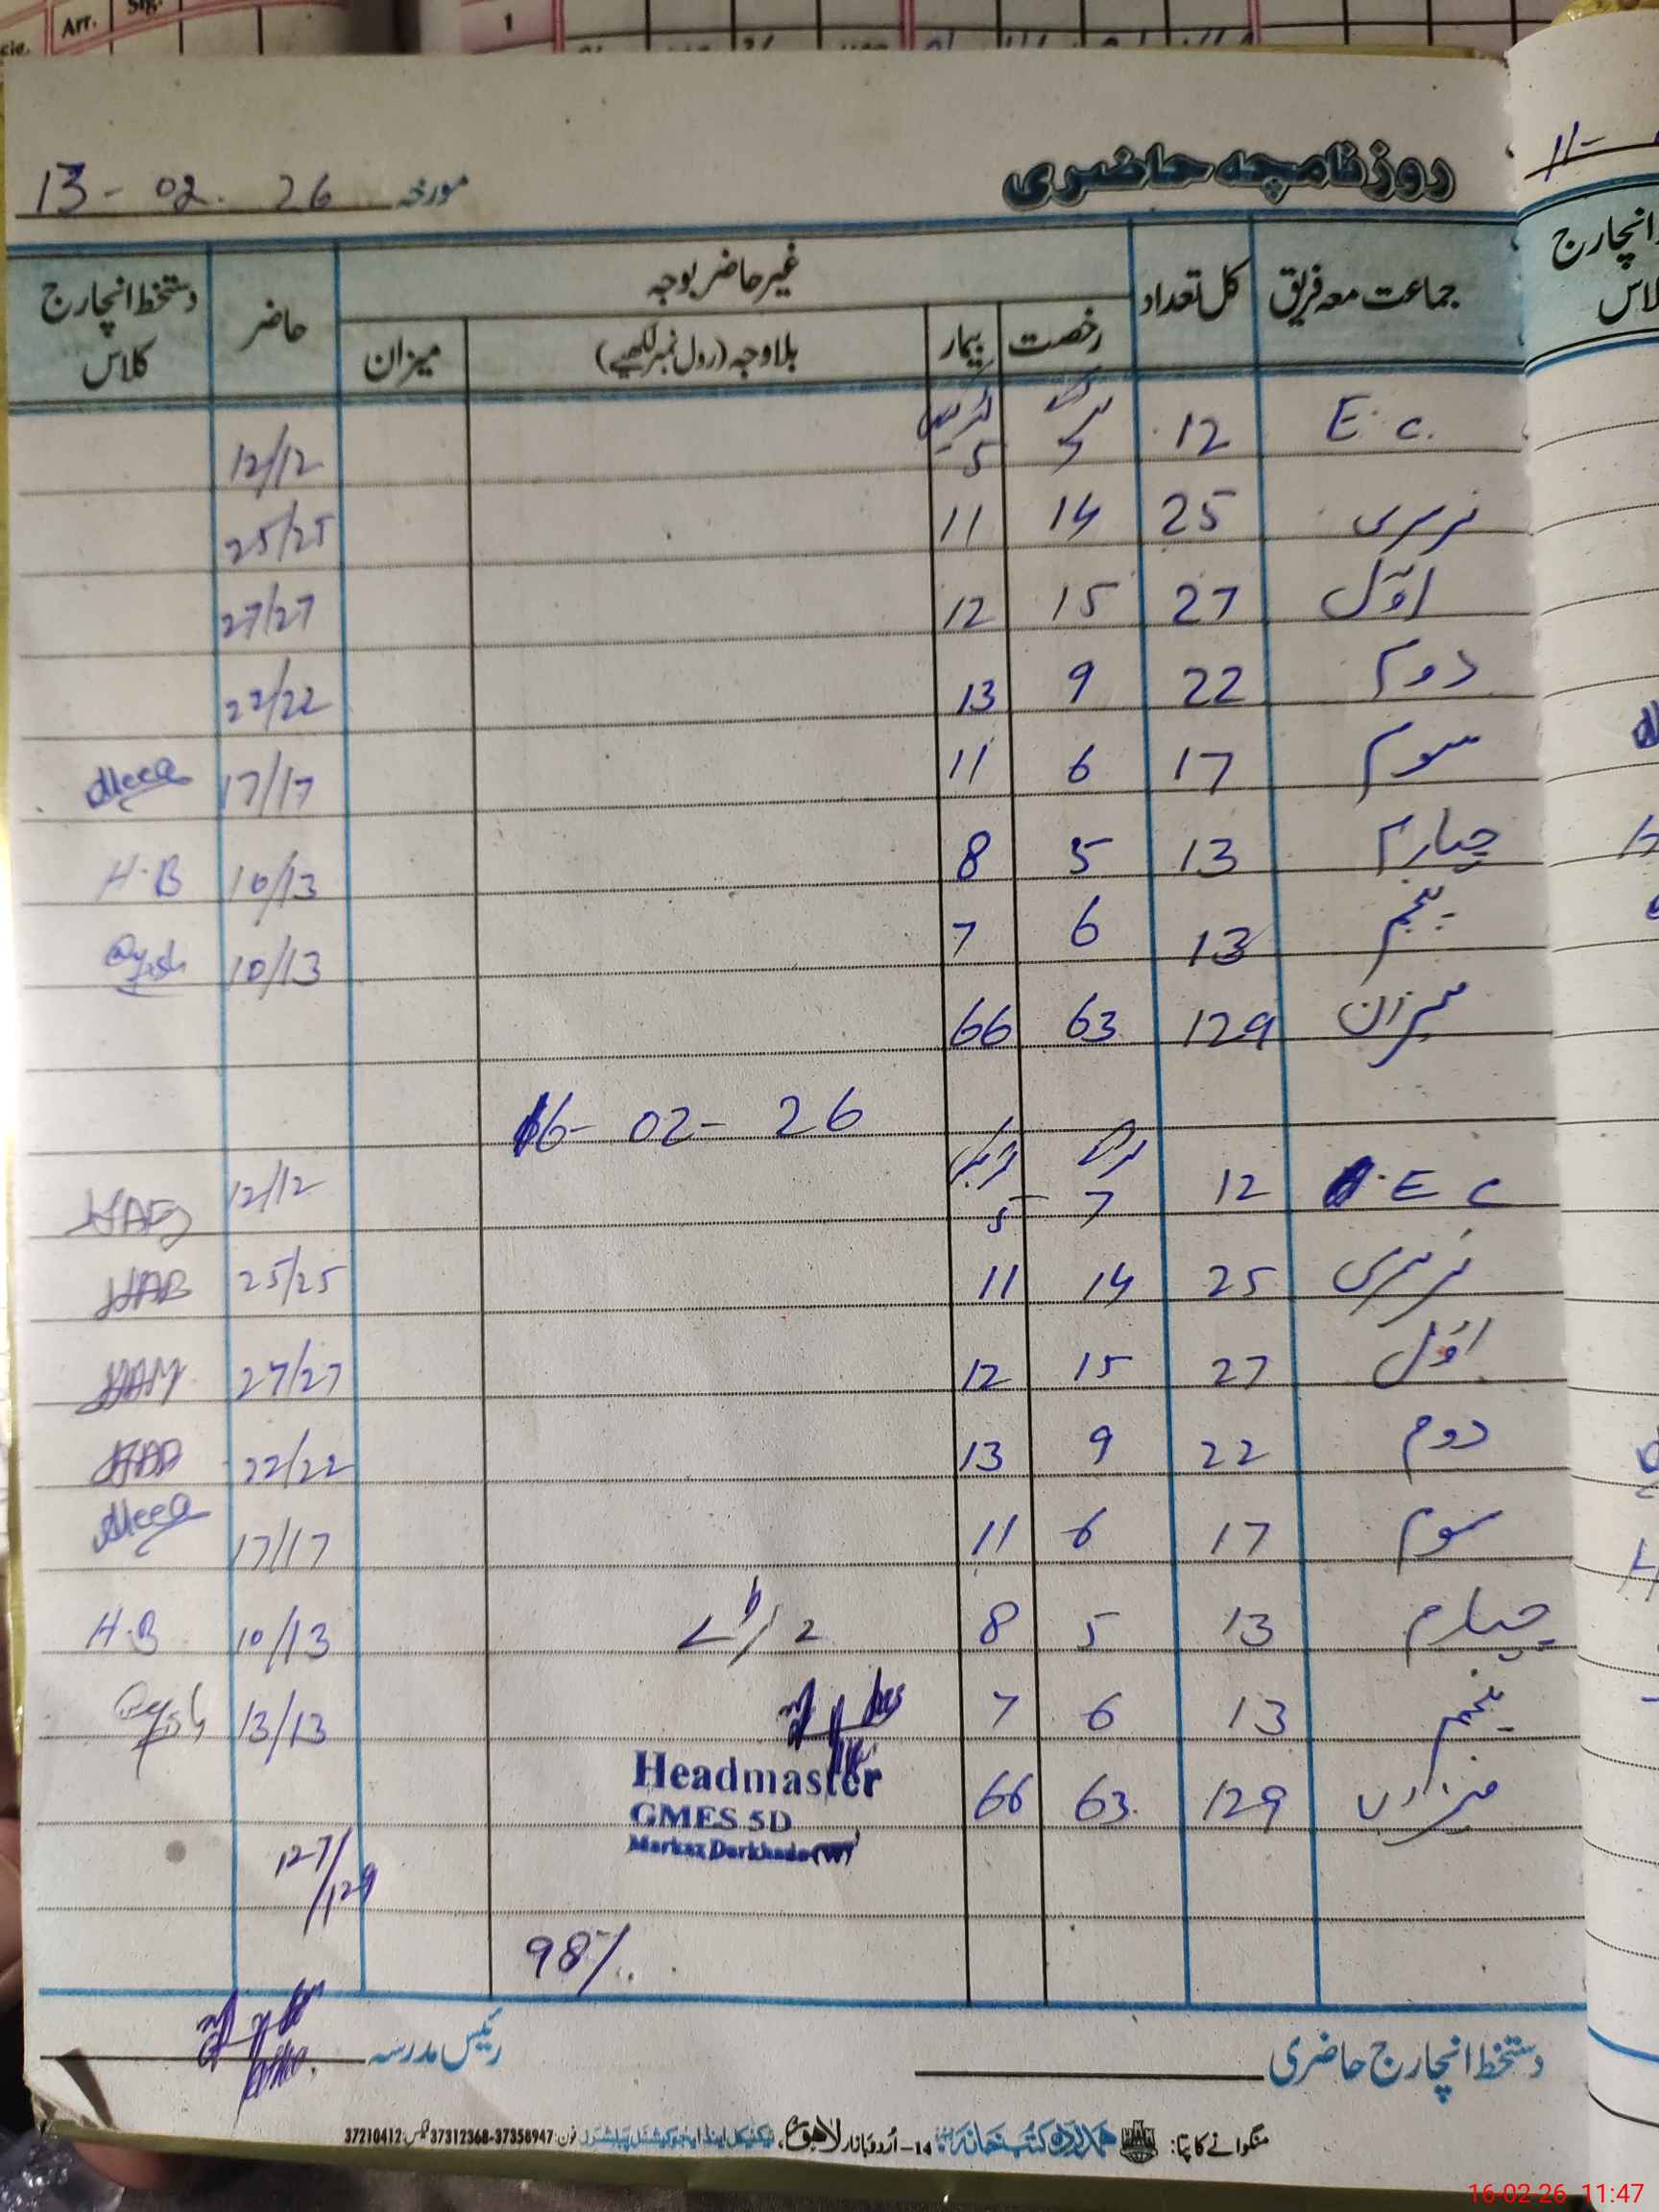 روزنامچہ حاضری
مورخہ 13-02-26
جماعت معہ فریق کل تعداد غیر حاضر بوجہ حاضر دستخط انچارج کلاس
رخصت بیمار بلاوجہ (رول نمبر لکھیے) میزان
E.C. 12 7 5 12/12
نرسری 25 14 11 25/25
اوّل 27 15 12 27/27
دوم 22 9 13 22/22
سوم 17 6 11 17/17
چہارم 13 5 8 10/13 H.B
پنجم 13 6 7 10/13
میزان 129 63 66
16-02-26
E C 12 7 5 12/12
نرسری 25 14 11 25/25
اوّل 27 15 12 27/27
دوم 22 9 13 22/22
سوم 17 6 11 17/17
چہارم 13 5 8 10/13 H.B
پنجم 13 6 7 13/13
میزان 129 63 66
Headmaster
GMES 5D
127/129
98%
دستخط انچارج حاضری
رئیس مدرسہ
منگوانے کا پتا: ہمدرد کتب خانہ 14-اُردو بازار لاہور فون: 37358947-37312368 فیکس: 37210412
انچارج
Arr. Sig.
1
16-02-26 11:47